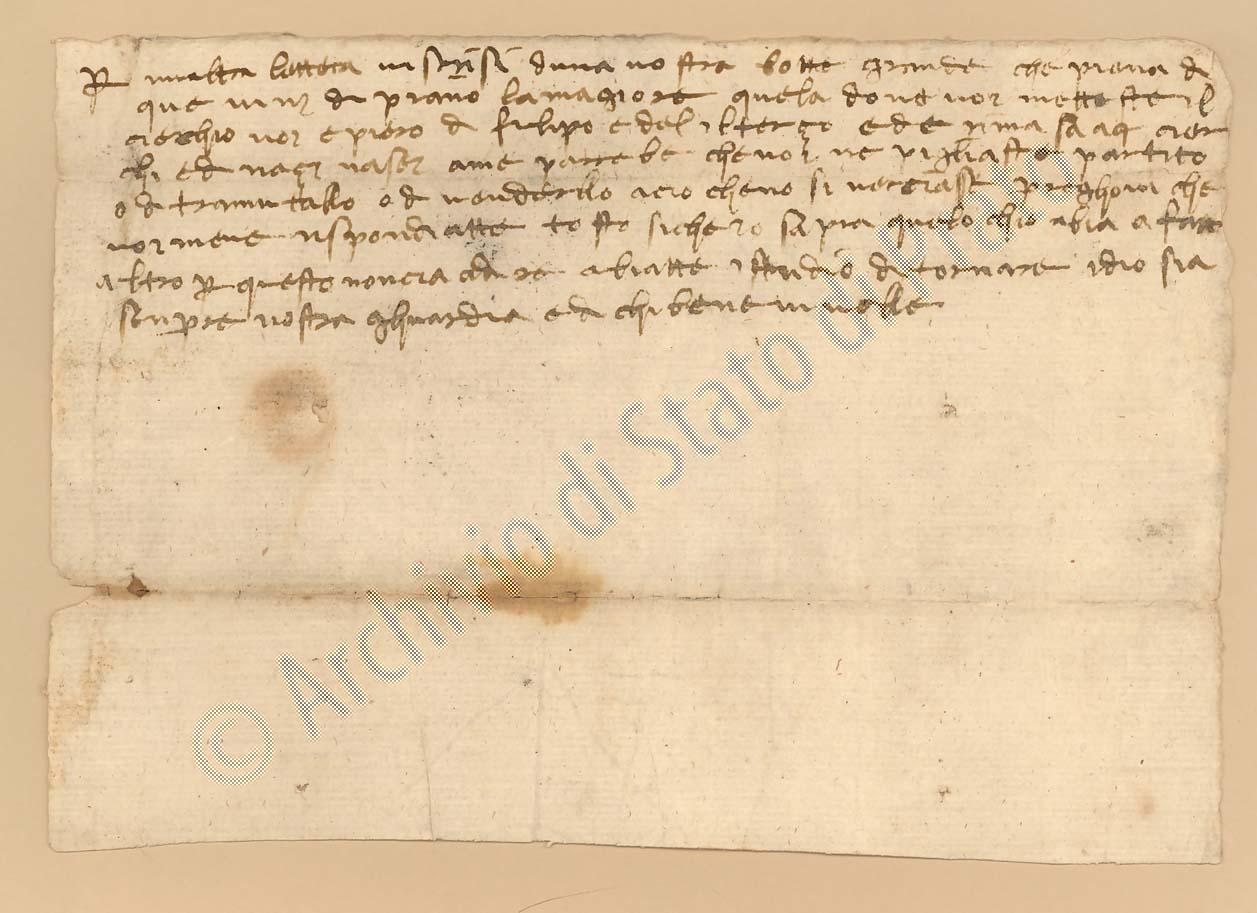 p(er) unaltra lettera vi scrissi duna vostra botte grande che piena di
que vini di piano la magiore quela dove voi metteste il
cierchio voi e piero di filipo e del
chi ed a me parebe che voi ne pigliaste partito
o di tramutallo o di venderllo acio che no si versasse preghovi che
voi mene rispondiatte tosto siche io sapia quelo chio abia a fare
altro p(er) questo non cia a dire abiatte istudio di tornare idio sia
senpre vostra ghuardia e di chi bene vi volle
© Archivio di Stato di Prato